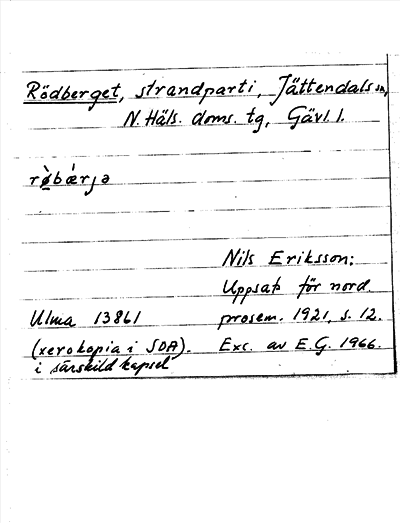 Rödberget, strandparti, Jättendals sn,
N. Häls. doms. tg, Gävl. l.
rø̀bǽrjə
Nils Eriksson:
Uppsats för nord.
Ulma 13861 prosem. 1921, s. 12.
(xerokopia i SOA). Exc. av E.G. 1966.
i särskild kapsel